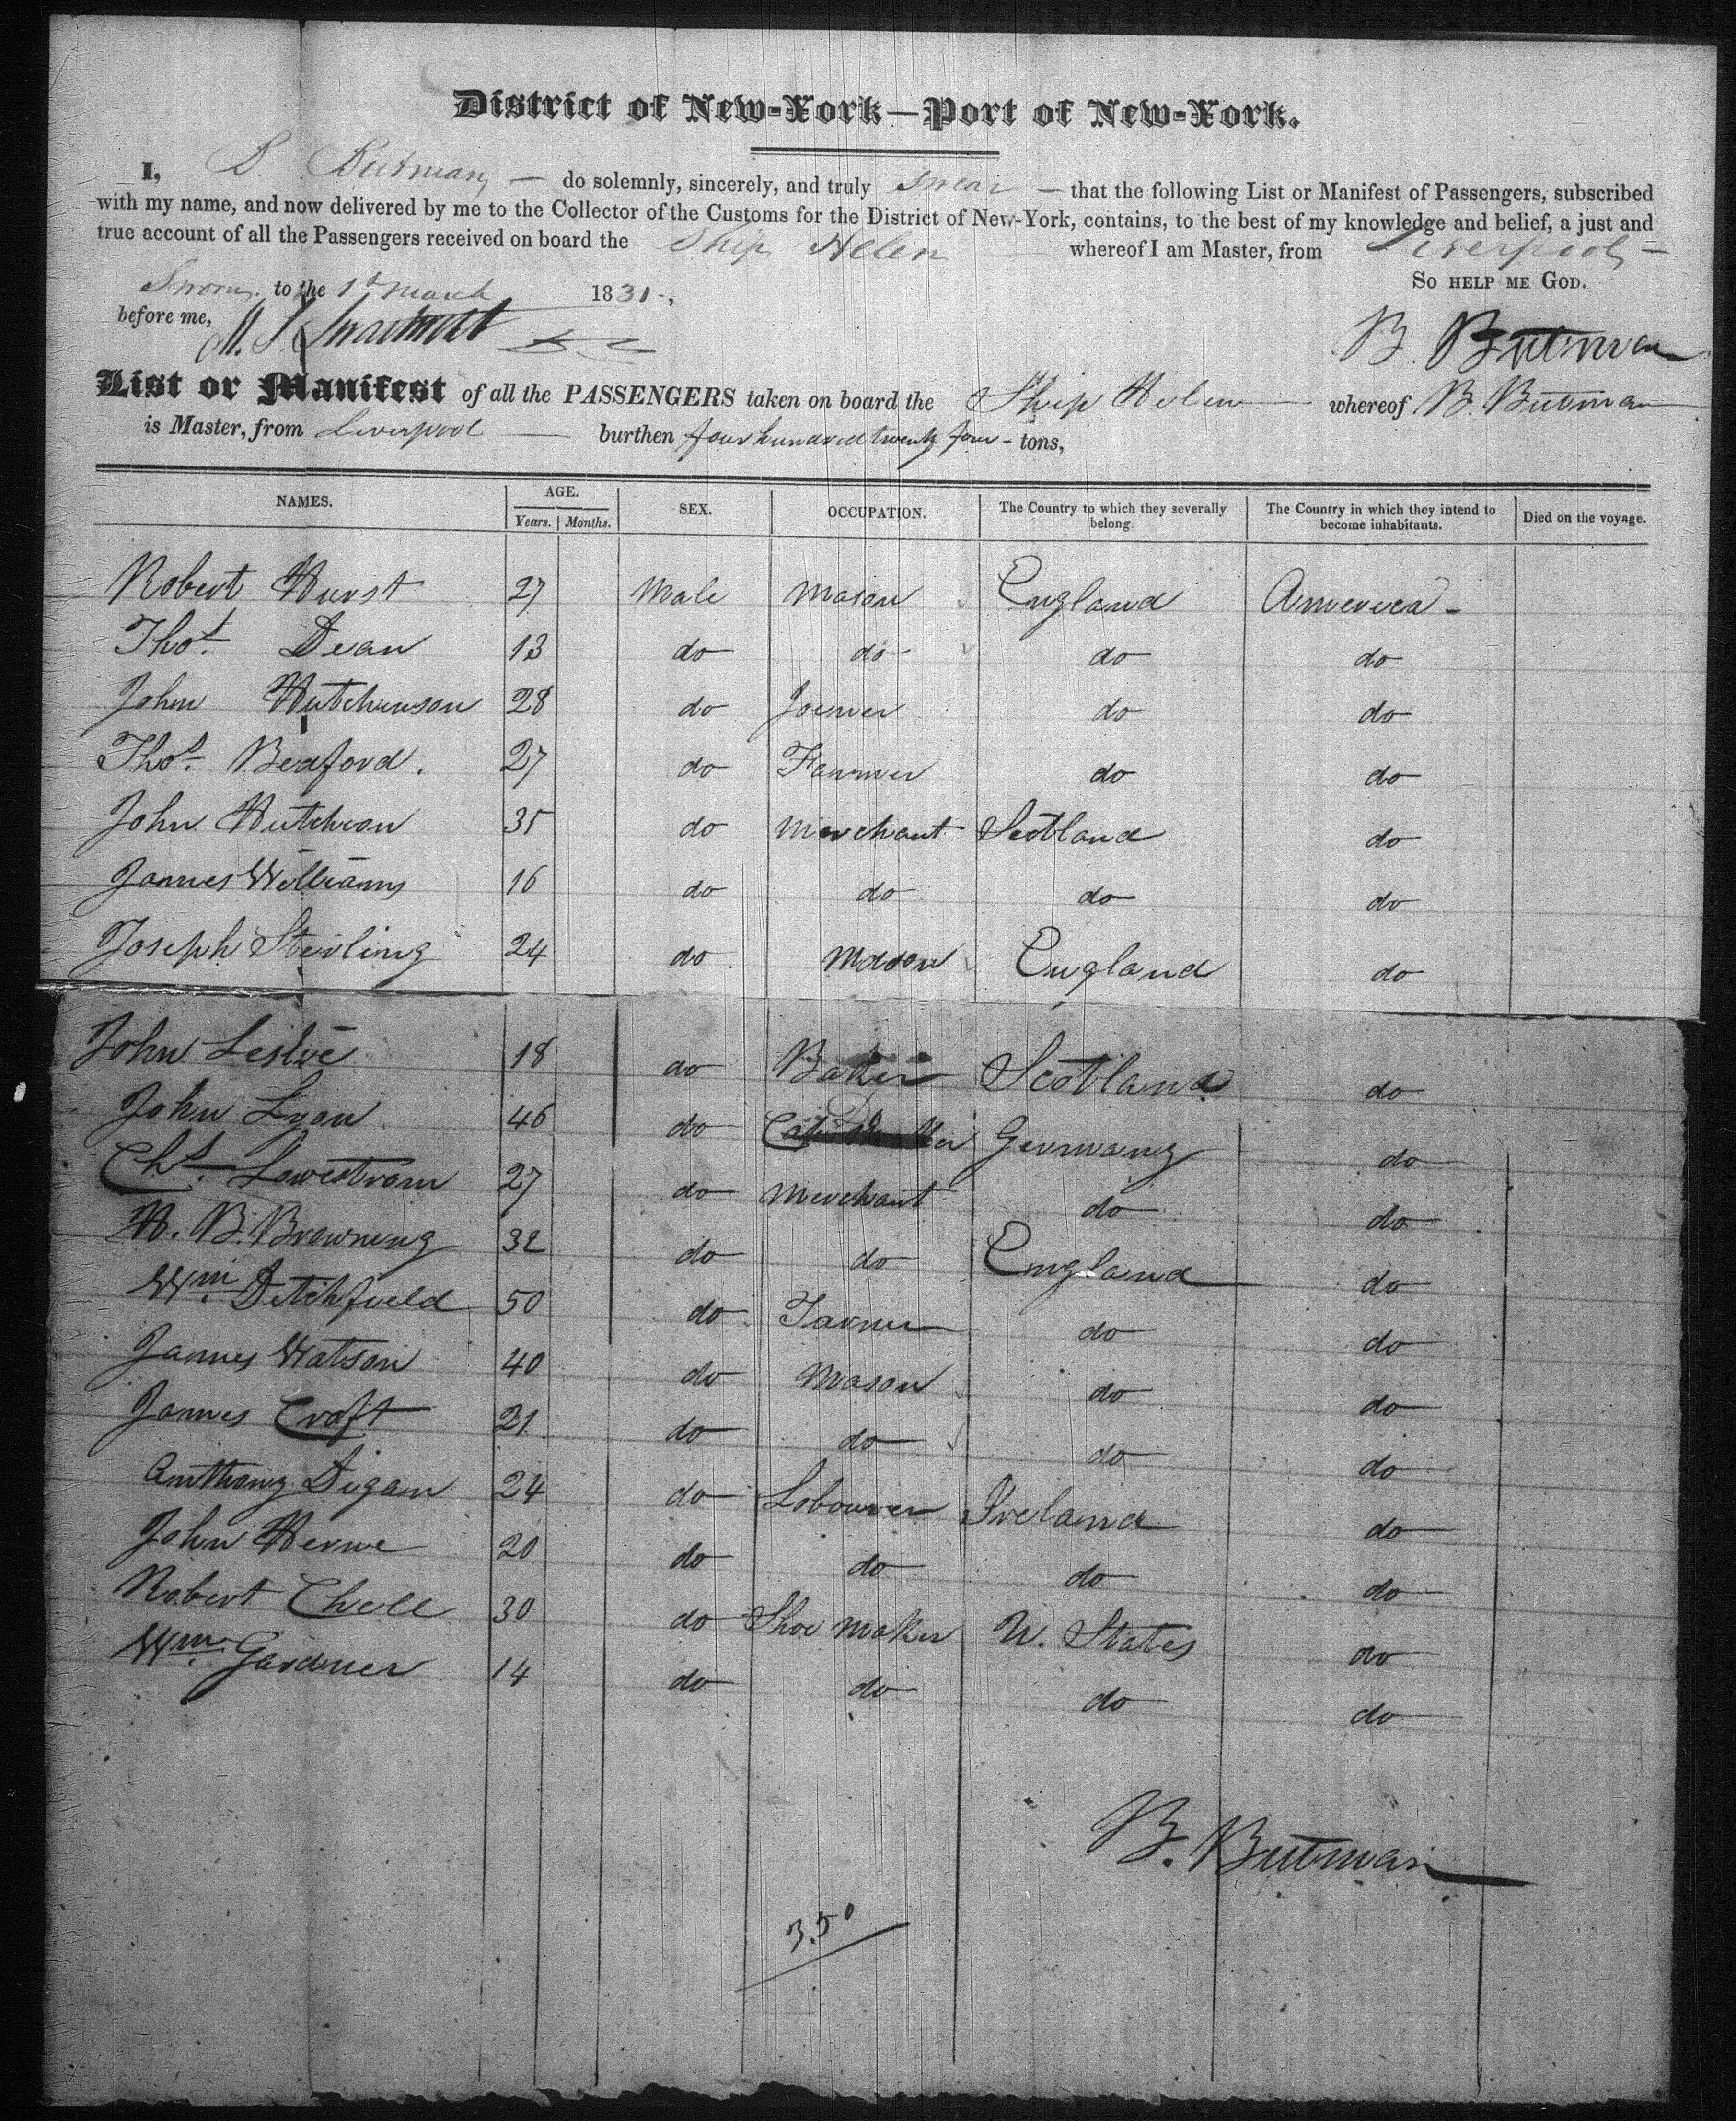 District of New-York—Port of New-York.
I, B. Butman — do solemnly, sincerely, and truly swear — that the following List or Manifest of Passengers, subscribed
with my name, and now delivered by me to the Collector of the Customs for the District of New-York, contains, to the best of my knowledge and belief, a just and
true account of all the Passengers received on board the Ship Helen whereof I am Master, from Liverpool —
So help me God.
Sworn to the 1st March 1831.,
before me,
B. Butman
List or Manifest of all the PASSENGERS taken on board the Ship Helen whereof B. Butman
is Master, from Liverpool — burthen four hundred twenty four - tons,
NAMES. AGE. Years. Months. SEX. OCCUPATION. The Country to which they severally belong. The Country in which they intend to become inhabitants. Died on the voyage.
Robert Hurst 27 Male Mason England America -
Thos. Dean 13 do do do do
John Hutchinson 28 do Joiner do do
Thos. Bedford. 27 do Farmer do do
John Hutcheon 35 do Merchant Scotland do
James Williams 16 do do do do
Joseph Sterling 24 do Mason England do
John Leslie 18 do Baker Scotland do
John Lyon 46 do Germany do
Chs. Lowestrom 27 do Merchant do do
H. B. Browning 32 do do England do
Wm. Ditchfield 50 do Farmer do do
James Watson 40 do Mason do do
James Croft 21 do do do do
Anthony Digan 24 do Labourer Ireland do
John 20 do do do do
Robert Chell 30 do Shoe Maker U. States do
Wm. Gardner 14 do do do do
B. Butman
3.50